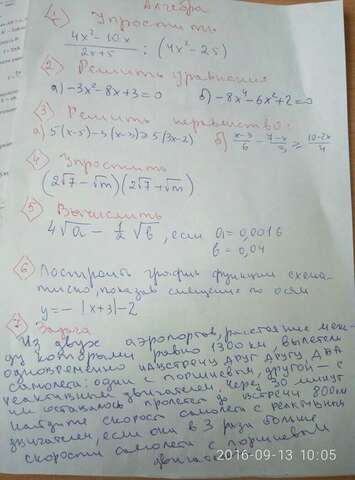 Алгебра
1 Упростить
4x²-10x / 2x+5 : (4x²-25)
2 Решить уравнения
а) -3x²-8x+3=0 б) -8x⁴-6x²+2=0
3 Решить неравенство:
а) 5(x-5)-3(x-3)≥5(3x-2) б) x-3/6 - 7-x/3 ≥ 10-2x/4
4 Упростить
(2√7-√m)(2√7+√m)
5 Вычислить
4√a - 1/2 √b, если a=0,0016
b=0,04
6 Построить график функции схема-
тично, показав смещение по осям
y=-|x+3|-2
7 Задача
Из двух аэропортов, расстояние меж-
ду которыми равно 1300 км, вылетели
одновременно навстречу друг другу два
самолета: один с поршневым, другой – с
реактивным двигателем. Через 30 минут
им оставалось пролететь до встречи 800км
найдите скорость самолета с реактивным
двигателем, если она в 3 раза больше
скорости самолета с поршневым
двигателем
2016-09-13 10:05